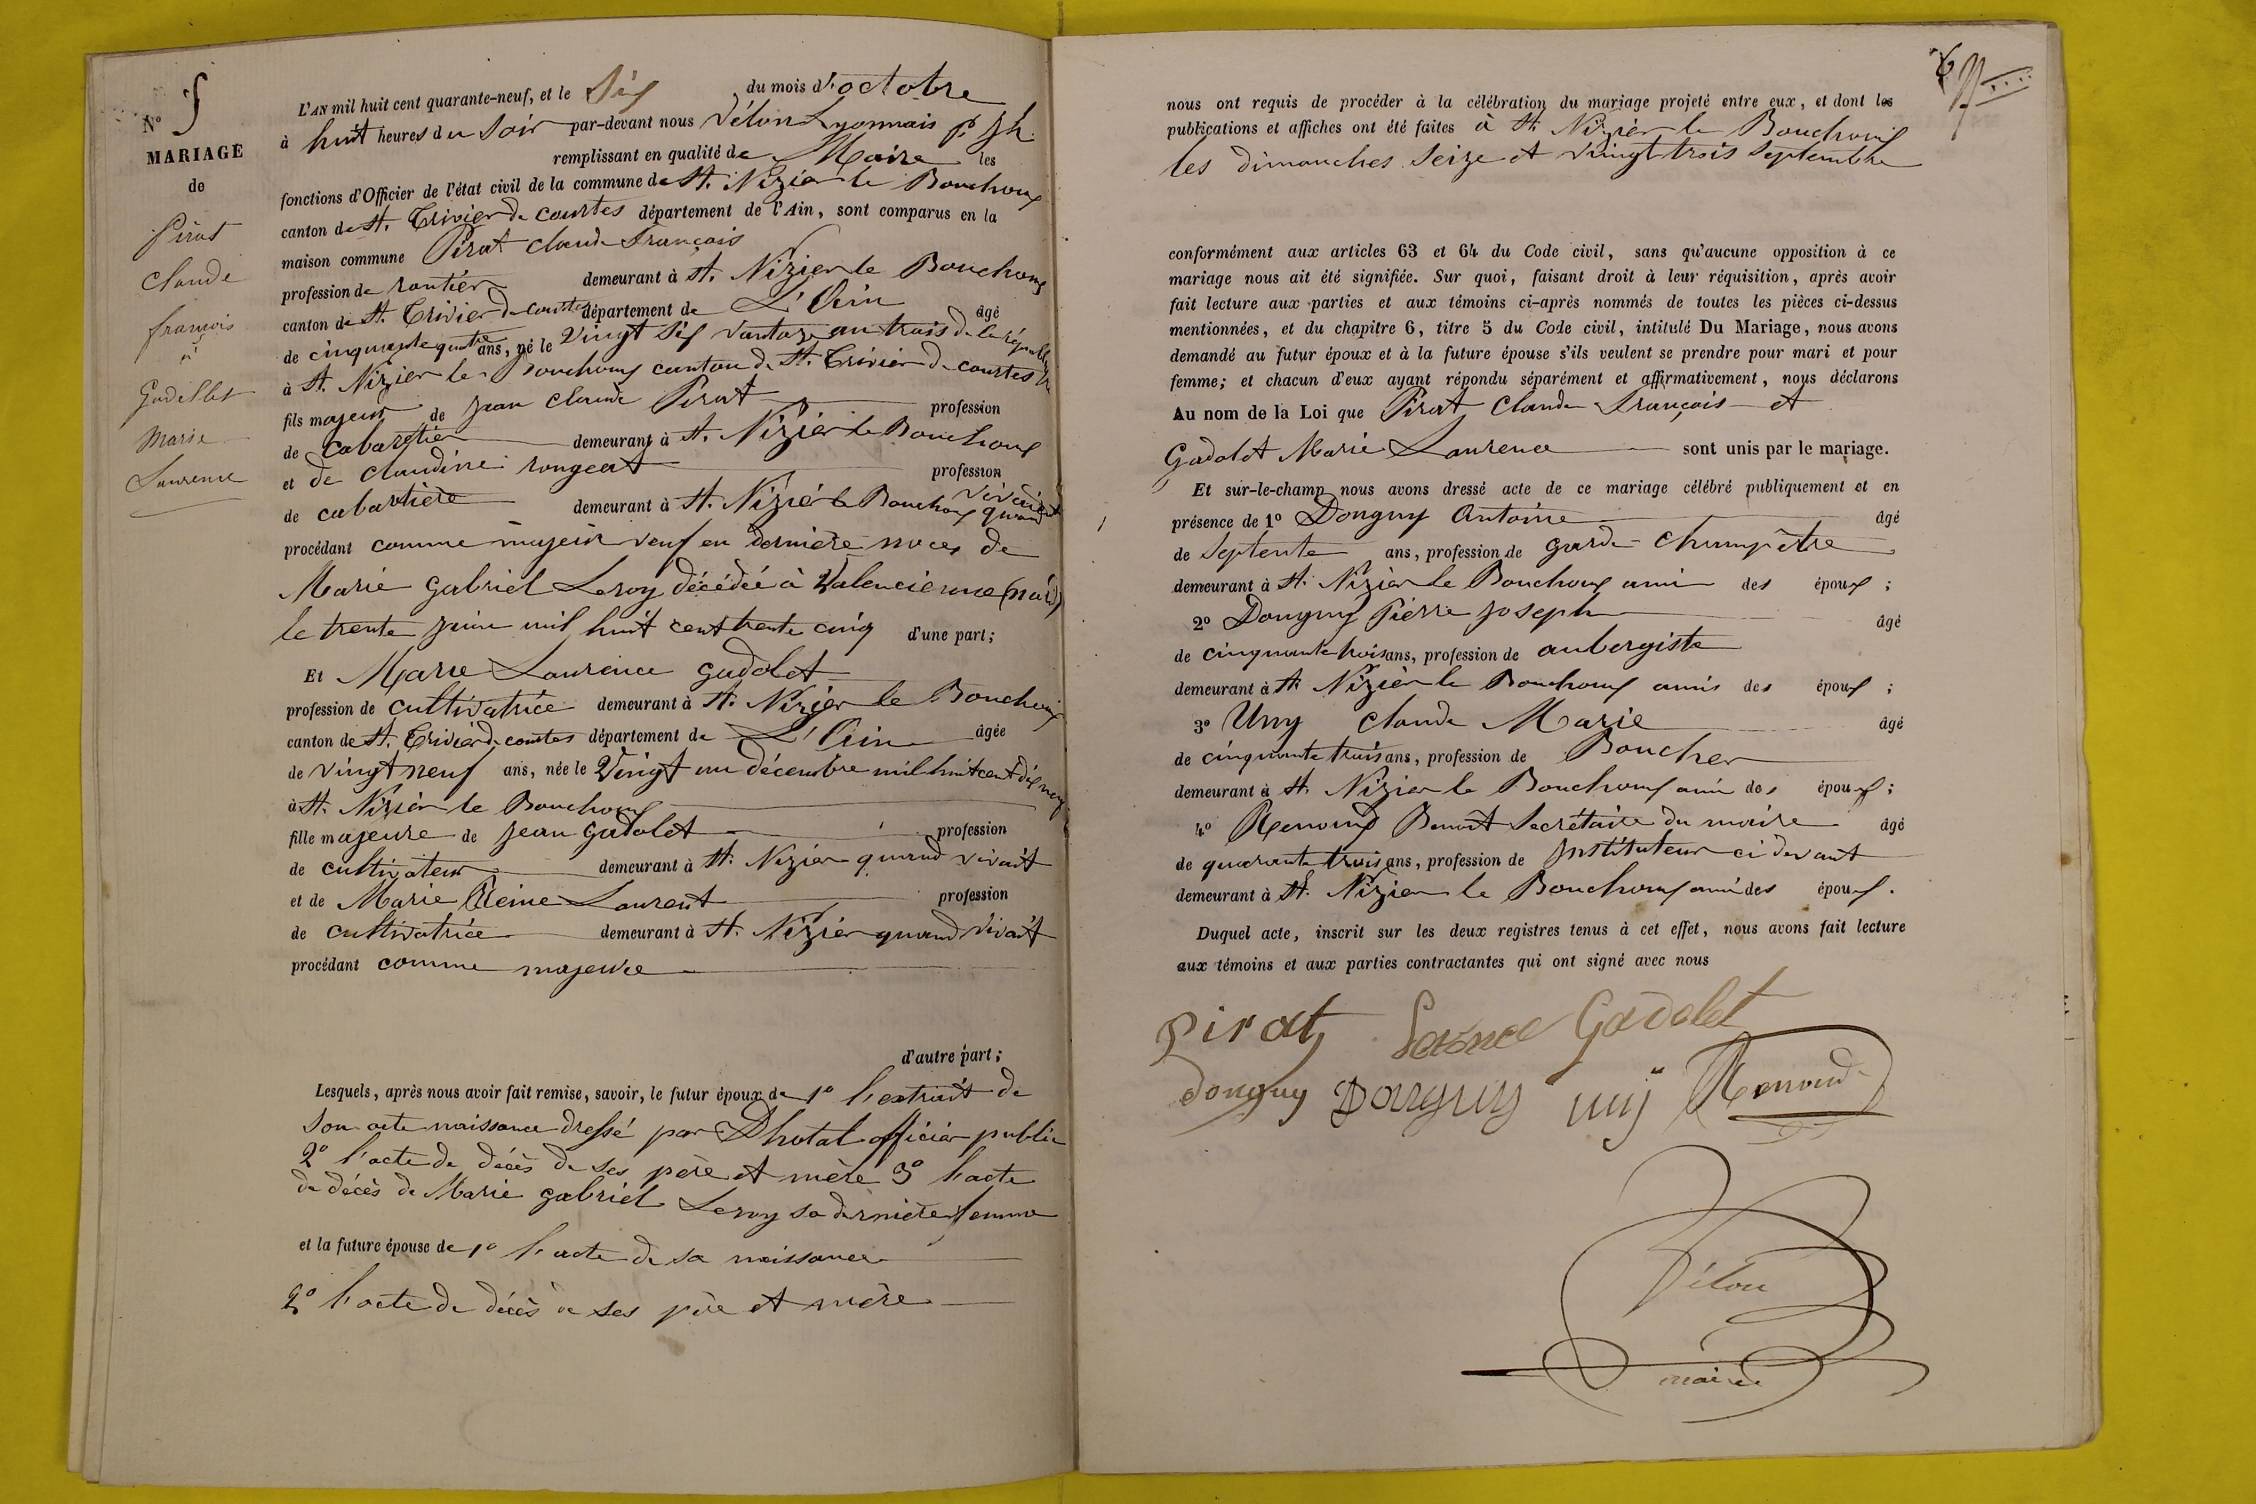 N° 5
MARIAGE
de
Pirat
Claude
françois
à
Gadellet
Marie
Laurence
L'AN mil huit cent quarante-neuf, et le Six du mois d'octobre
à huit heures du soir par-devant nous Vélon Lyonnais pre jh
remplissant en qualité de Maire les
fonctions d'Officier de l'état civil de la commune de St. Nizier le Bouchoux
canton de St. Trivier de courtes département de l'Ain, sont comparus en la
maison commune Pirat Claude François
profession de rentier demeurant à St. Nizier le Bouchoux
canton de St. Trivier de courtes département de L'Ain âgé
de cinquante quatre ans, né le Vingt Six Vantoze an trois de la république
à St. Nizier le Bouchoux canton de St. Trivier de courtes
fils majeur de jean claude Pirat profession
de cabaretier demeurant à St. Nizier le Bouchoux
et de claudine rongeat profession
de cabartière demeurant à St. Nizier le Bouchoux quand vivaient
procédant comme majeur veuf en dernière noces de
Marie gabriel Leroy décédée à Valencienne (nord)
le trente juin mil huit cent trente cinq d'une part;
Et Marie Laurence gadolet
profession de cultivatrice demeurant à St. Nizier le Bouchoux
canton de St. Trivier de courtes département de L'Ain âgée
de vingt neuf ans, née le Vingt un décembre mil huit cent dix neuf
à St. Nizier le Bouchoux
fille majeure de jean gadolet profession
de cultivateur demeurant à St. Nizier quand vivait
et de Marie Reine Laurent profession
de cultivatrice demeurant à St. Nizier quand vivait
procédant comme majeure
d'autre part;
Lesquels, après nous avoir fait remise, savoir, le futur époux de 1° l'extrait de
son acte naissance dressé par Dhotal officier public
2° l'acte de décès de ses père et mère 3° l'acte
de décès de Marie gabriel Leroy sa dernière femme
et la future épouse de 1° l'acte de sa naissance
2° l'acte de décès de ses père et mère
nous ont requis de procéder à la célébration du mariage projeté entre eux, et dont les
publications et affiches ont été faites à St. Nizier le Bouchoux
les dimanches seize et vingt trois septembre
conformément aux articles 63 et 64 du Code civil, sans qu'aucune opposition à ce
mariage nous ait été signifiée. Sur quoi, faisant droit à leur réquisition, après avoir
fait lecture aux parties et aux témoins ci-après nommés de toutes les pièces ci-dessus
mentionnées, et du chapitre 6, titre 5 du Code civil, intitulé Du Mariage, nous avons
demandé au futur époux et à la future épouse s'ils veulent se prendre pour mari et pour
femme; et chacun d'eux ayant répondu séparément et affirmativement, nous déclarons
Au nom de la Loi que Pirat Claude François et
Gadolet Marie Laurence sont unis par le mariage.
Et sur-le-champ nous avons dressé acte de ce mariage célébré publiquement et en
présence de 1° Donguy Antoine âgé
de Septente ans, profession de garde-champêtre
demeurant à St. Nizier le Bouchoux ami des époux;
2° Donguy Pierre joseph âgé
de cinquante trois ans, profession de aubergiste
demeurant à St. Nizier le Bouchoux amis des époux;
3° Uny claude Marie âgé
de cinquante trois ans, profession de Boucher
demeurant à St. Nizier le Bouchoux ami des époux;
4° Renoud Benoit Secrétaire du maire âgé
de quarante trois ans, profession de Instituteur ci devant
demeurant à St. Nizier le Bouchoux ami des époux.
Duquel acte, inscrit sur les deux registres tenus à cet effet, nous avons fait lecture
aux témoins et aux parties contractantes qui ont signé avec nous
Pirat Gadolet
donguy Donguy uny Renoud
Vélon
maire